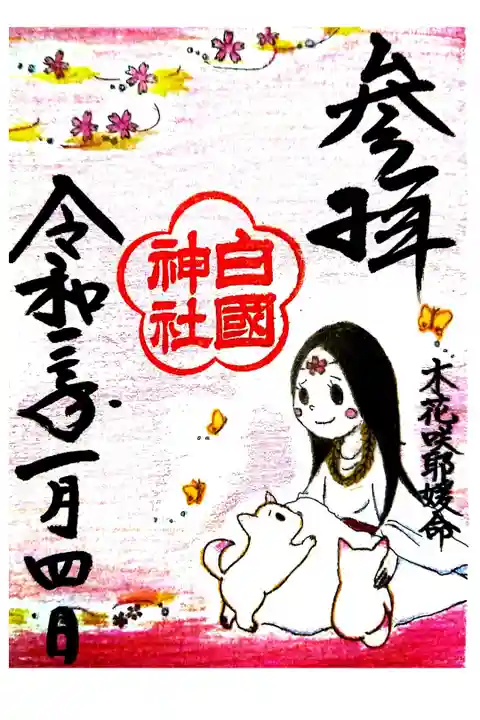 参拝
木花咲耶媛命
白國
神社
令和三年一月四日